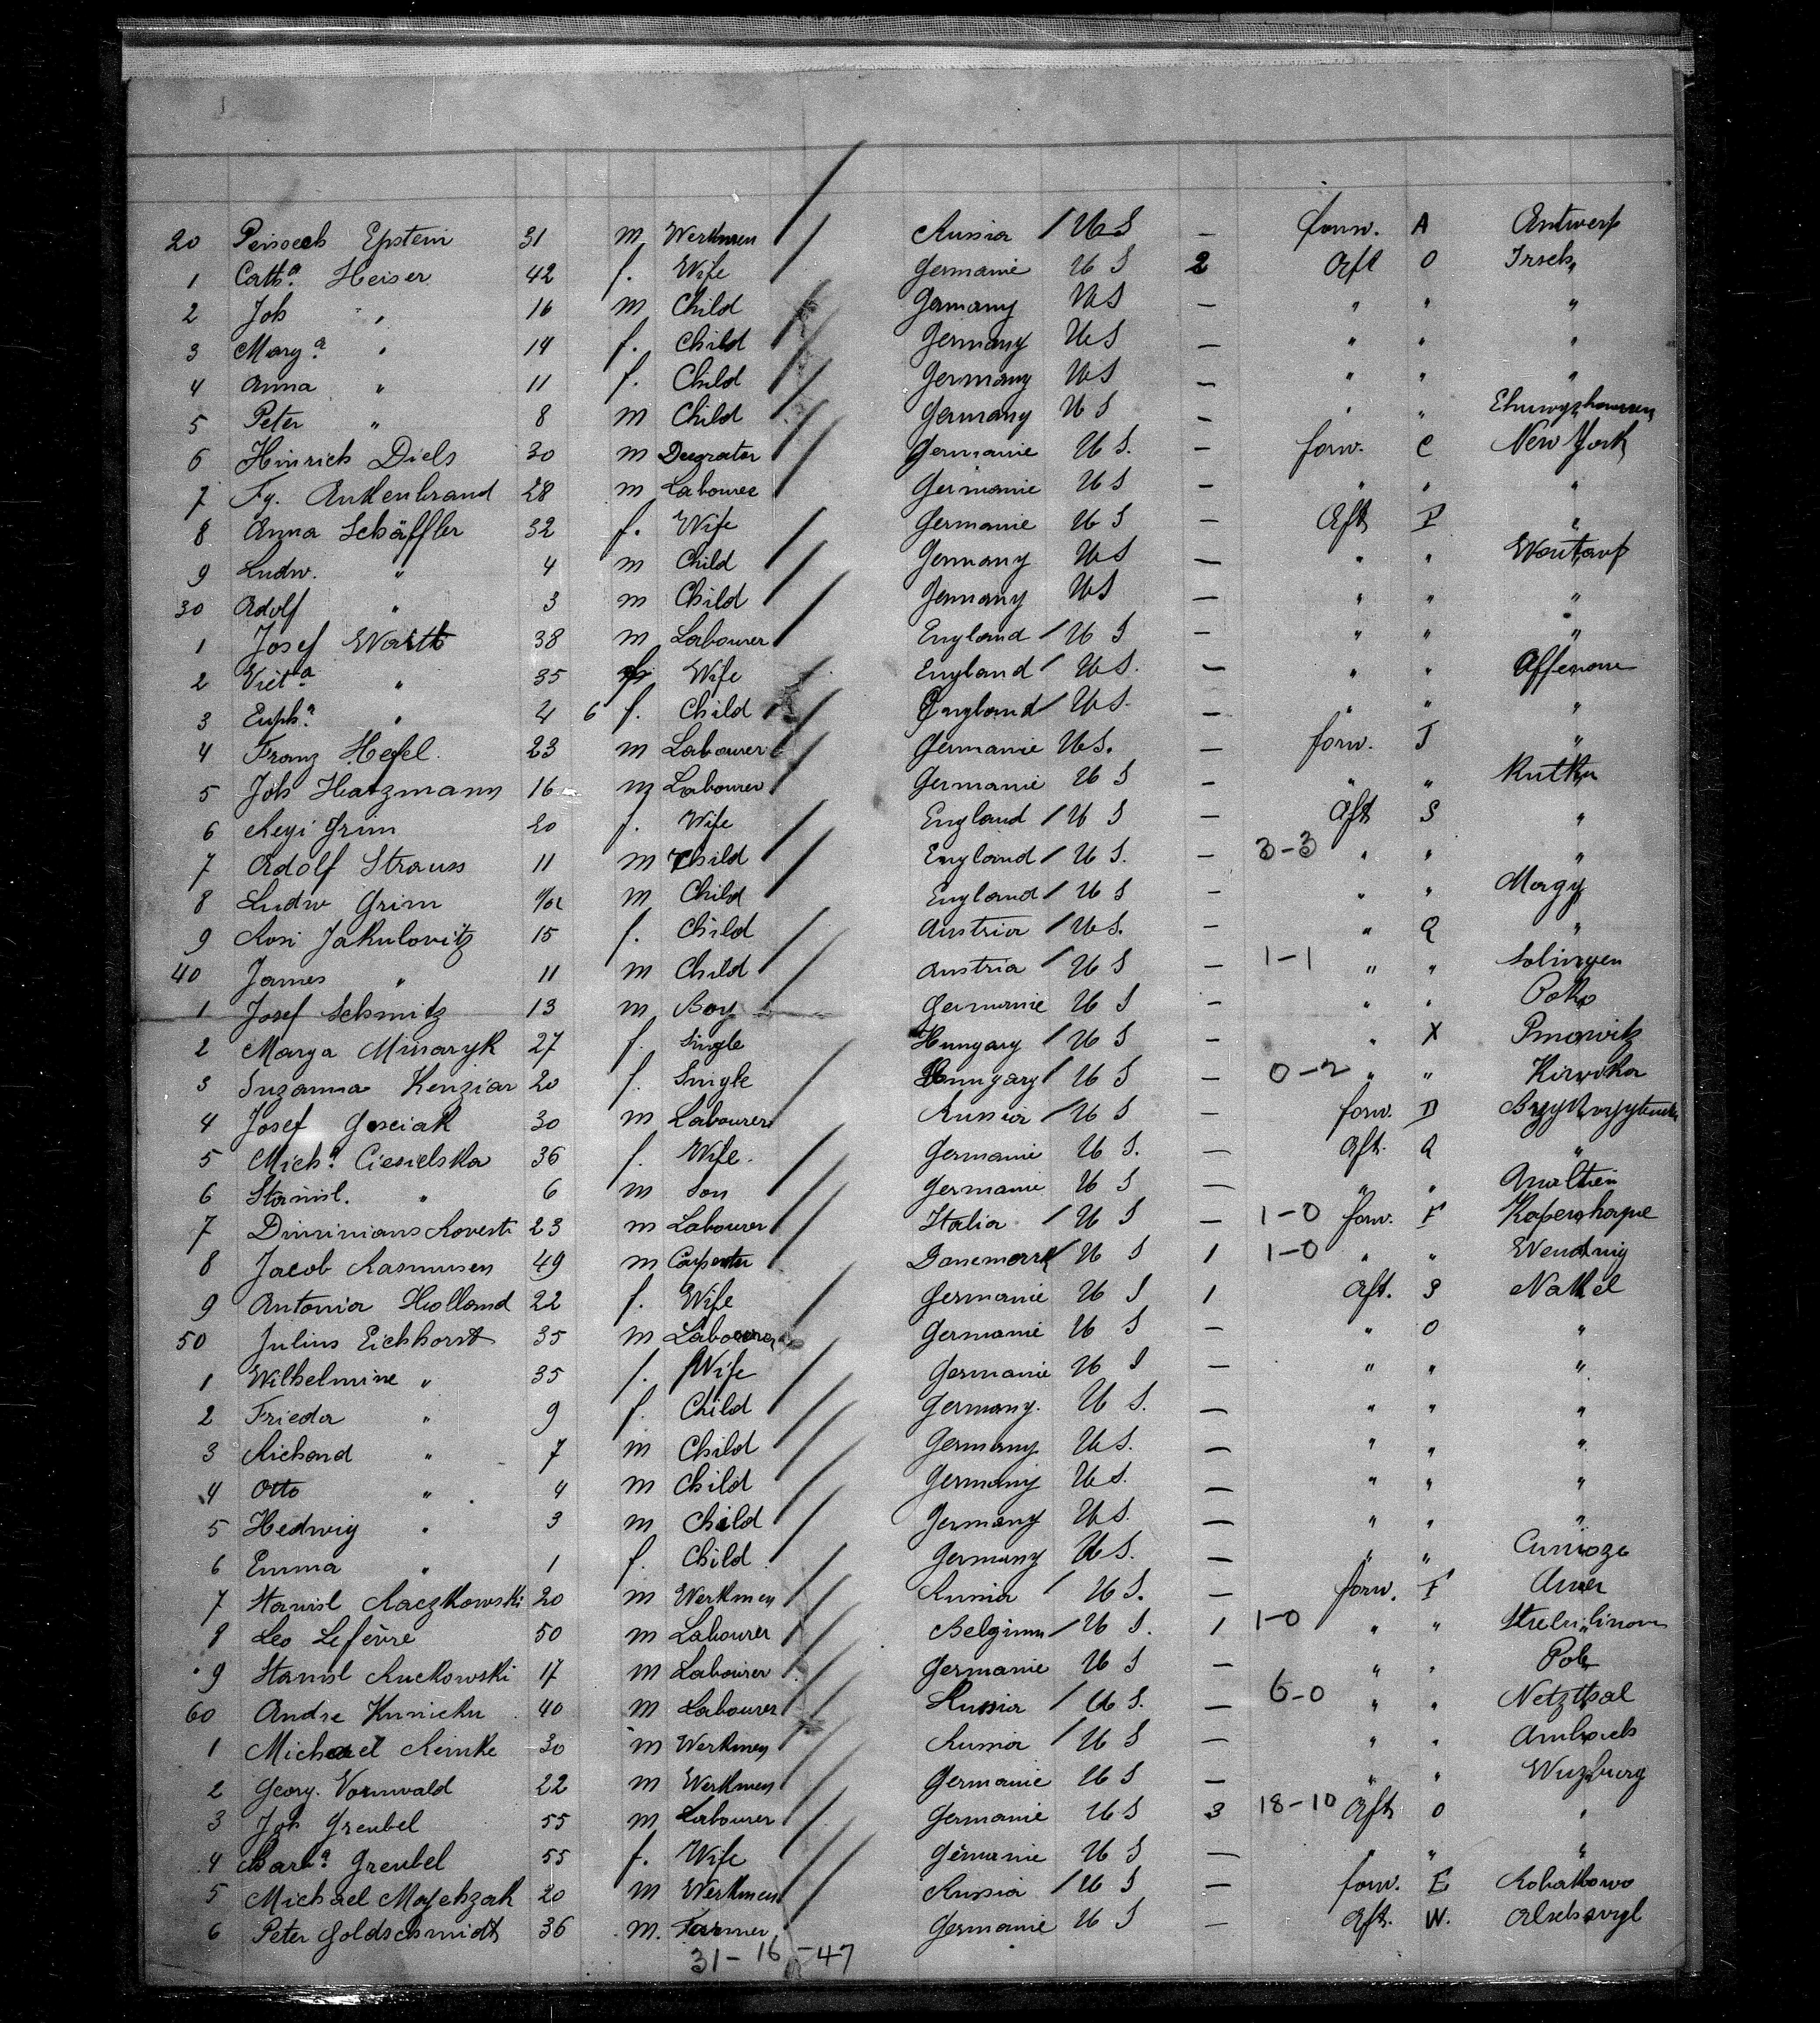 20 Peisach Epstein 31 m Werkmen Russia / U S — forw. A Antwerp
1 Cath.a Heiser 42 f. Wife Germanie U S 2 Aft O Irsch
2 Joh " 16 m Child Germany U S — " " "
3 Marg.a " 14 f. Child Germany U S — " " "
4 Anna " 11 f. Child Germany U S — " " "
5 Peter " 8 m Child Germany U S — " "
6 Hinrich Diels 30 m Germanie U S. — forw. C New York
7 Fy. Ankenbrand 28 m Labourer Germanie U S — " " "
8 Anna Schäffler 32 f. Wife Germanie U S — Aft I "
9 Ludw. " 4 m Child Germany U S — " "
30 Adolf " 3 m Child Germany U S — " " "
1 Josef Warth 38 m Labourer England / U S — " " "
2 Vict.a " 35 f Wife England / U S. — " "
3 Euph.a " 4 6 f. Child England / U S. — " " "
4 Franz Hefel. 23 m Labourer Germanie U S. — forw. J "
5 Joh Hatzmann 16 m Labourer Germanie U S — " "
6 Regi Grim 20 f. Wife England / U S — Aft S "
7 Adolf Strauss 11 m Child England / U S. — 3-3 " " "
8 Ludw Grim m Child England / U S — " "
9 Rosi Jakulovitz 15 f. Child Austria / U S. — " Q "
40 James " 11 m Child Austria / U S — 1-1 " " Solingen
1 Josef Schmitz 13 m Boy Germanie U S — " "
2 Marya Minaryk 27 f. Single Hungary / U S — " X
3 Suzanna Kenziar 20 f. Single Hungary / U S — 0-2 " "
4 Josef Gosciak 30 m Labourer Russia / U S — forw. D
5 Mich.a Ciesielska 36 f. Wife. Germanie U S. — Aft. Q "
6 Stanisl. " 6 m Son Germanie U S — " "
7 Rovesti 23 m Labourer Italia / U S — 1-0 forw. F
8 Jacob Rasmusen 49 m Carpenter Danemark / U S 1 1-0 " "
9 Antonia Holland 22 f. Wife Germanie U S 1 Aft. S Nakel
50 Julius Eichhorst 35 m Labourer Germanie U S — " O "
1 Wilhelmine " 35 f. Wife Germanie U S — " " "
2 Frieda " 9 f. Child Germany. U S. — " " "
3 Richard " 7 m Child Germany U S. — " " "
4 Otto " 4 m Child Germany U S. — " " "
5 Hedwig " 3 m Child Germany U S. — " " "
6 Emma " 1 f. Child Germany U S. — " "
7 Stanisl Raczkowski 20 m Werkmen Russia / U S. — forw. F
8 Leo Lefèvre 50 m Labourer Belgium / U S. 1 1-0 " "
9 Stanisl Ruckowski 17 m Labourer Germanie U S — " "
60 Andre Kunicku 40 m Labourer Russia / U S. — 6-0 " " Netzthal
1 Michael Reinke 30 m Werkmen Russia / U S — " "
2 Georg. Vornwald 22 m Werkmen Germanie U S — " " Wuzburg
3 Joh Greubel 55 m Labourer Germanie U S 3 18-10 Aft O "
4 Barb.a Greubel 55 f. Wife Germanie U S — " " "
5 Michael Majchzak 20 m Werkmen Russia / U S — forw. E
6 Peter Goldschmidt 36 m. Farmer Germanie U S — Aft. W.
31-16-47